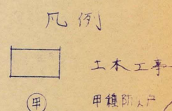 凡例
土木工事
甲 甲種防火戸